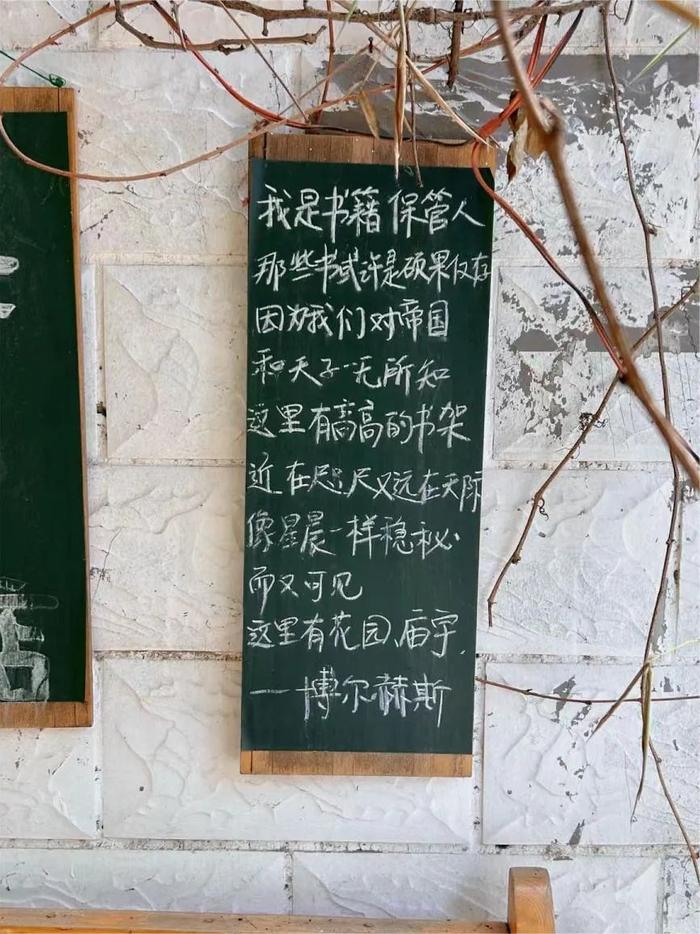 我是书籍保管人
那些书或许是硕果仅存
因为我们对帝国
和天子一无所知
这里有高高的书架
近在咫尺又远在天际
像星晨一样稳秘
而又可见
这里有花园、庙宇.
——博尔赫斯